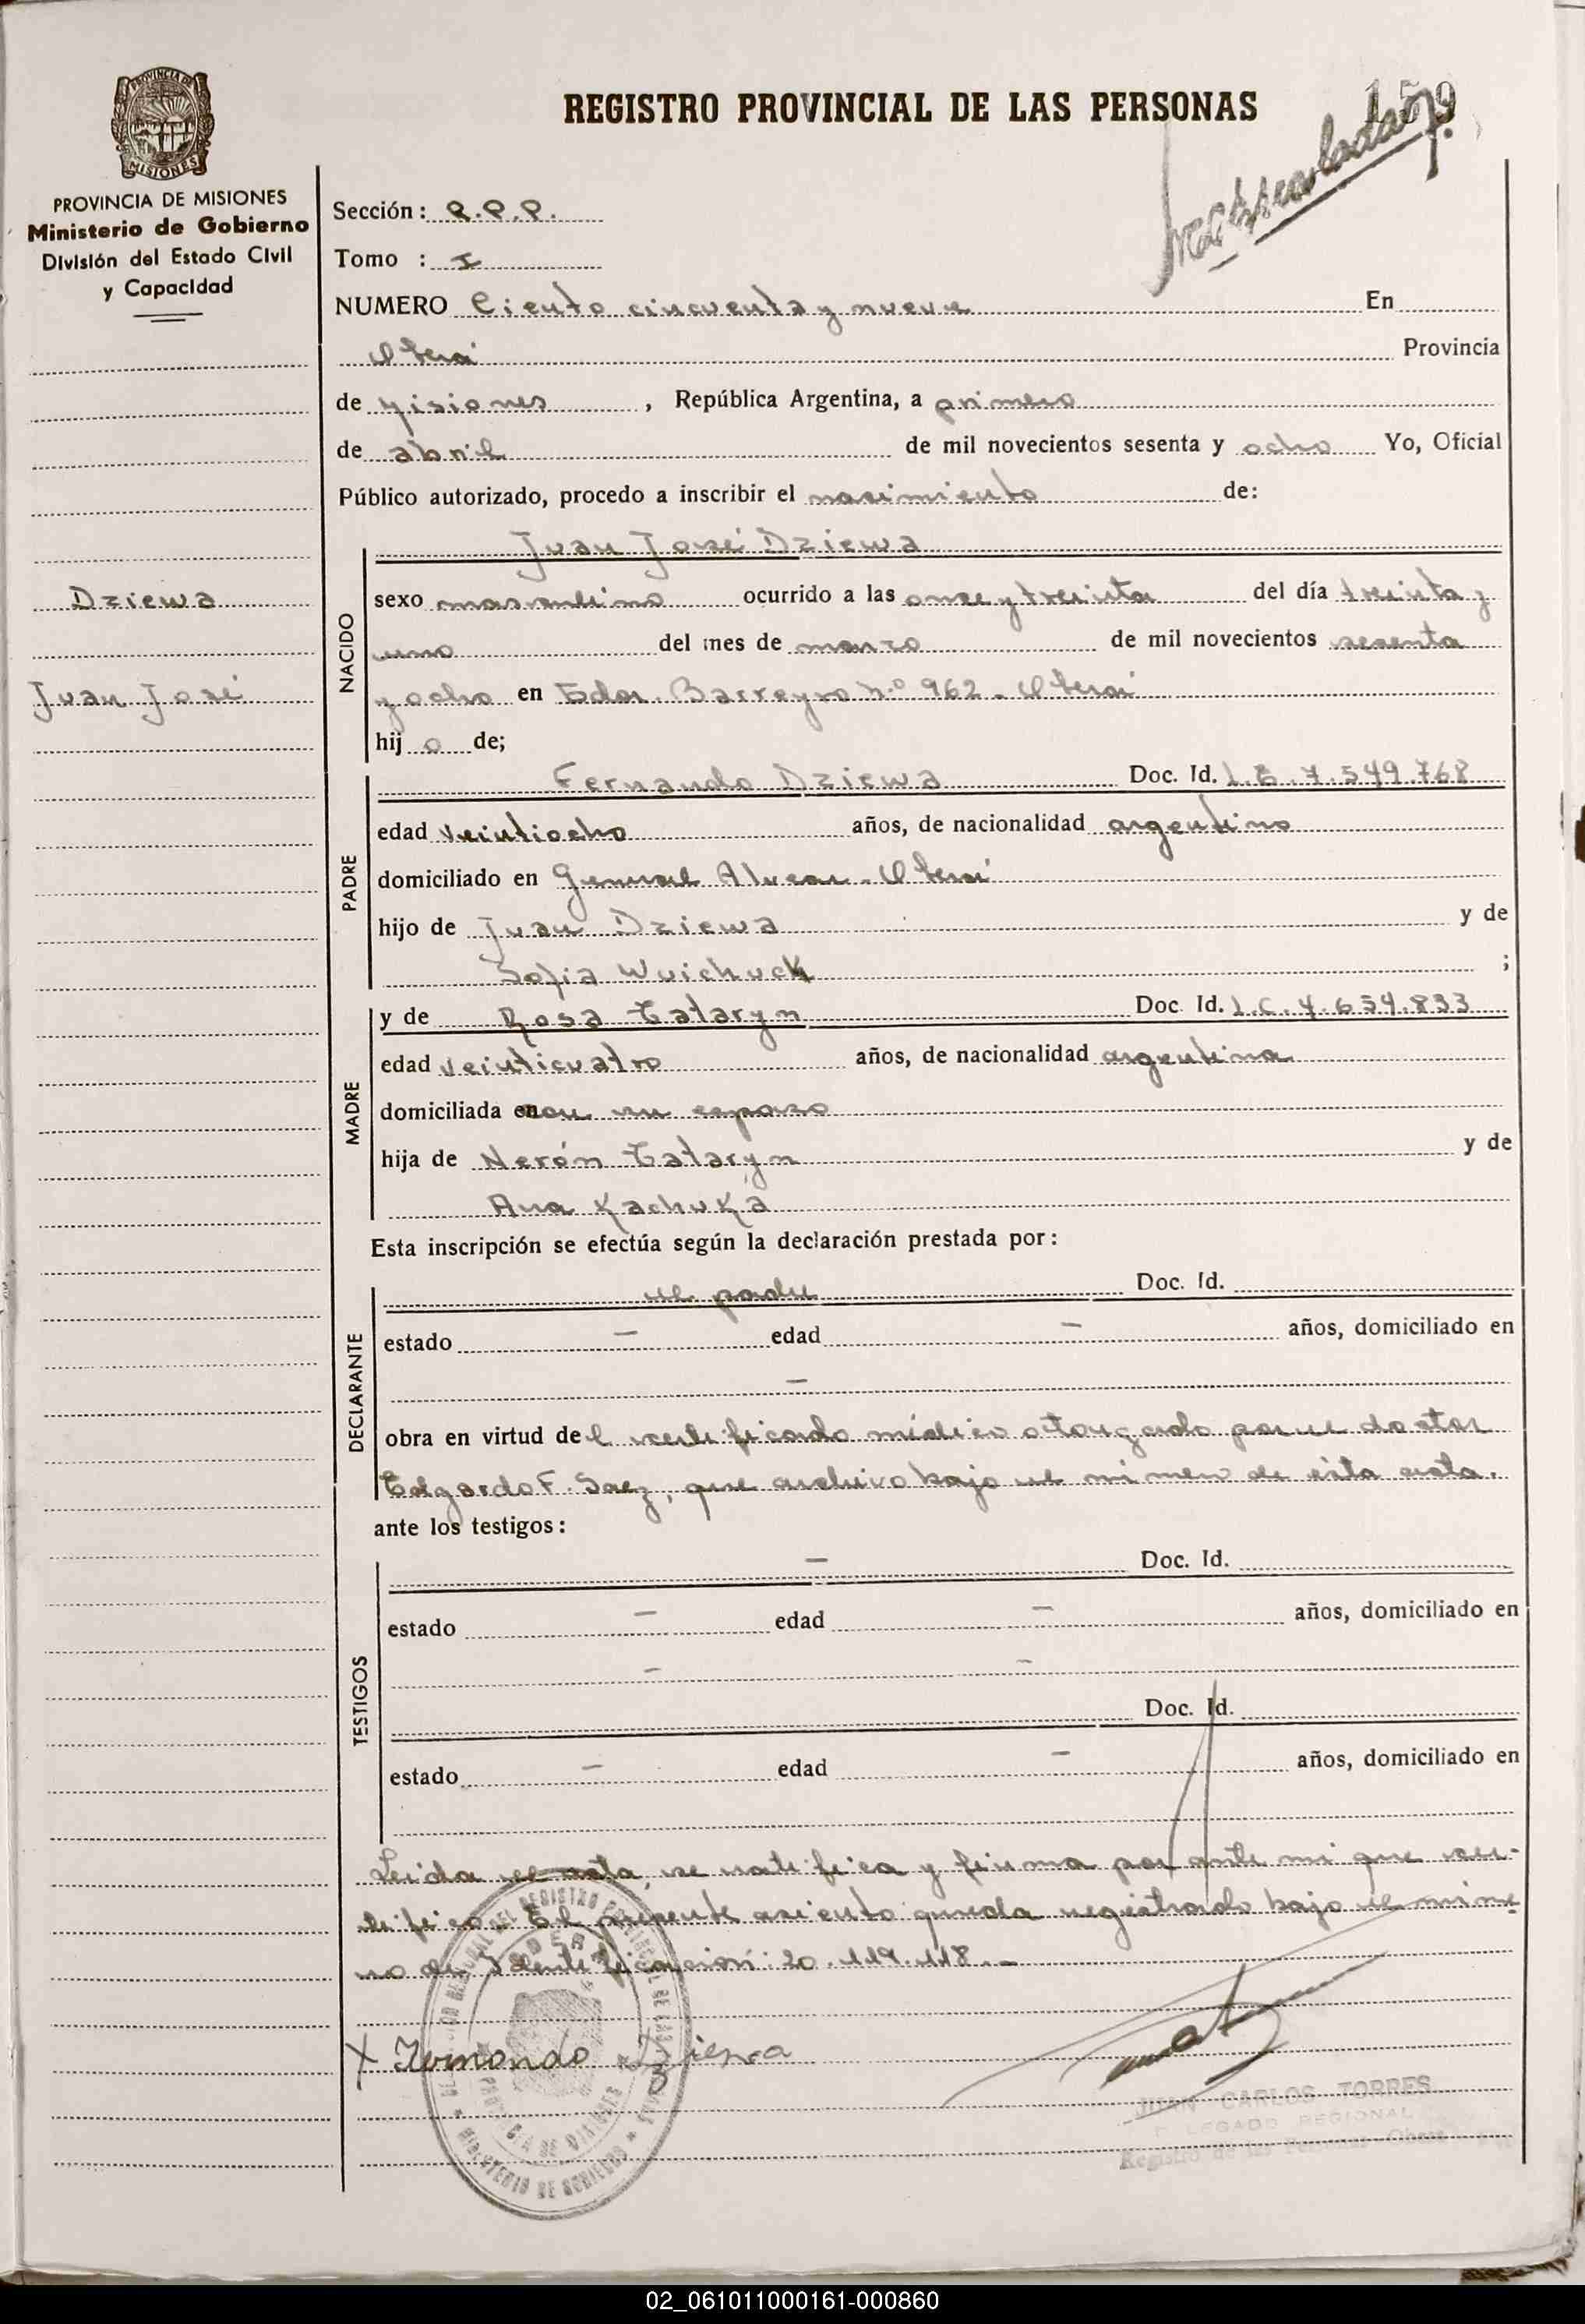 REGISTRO PROVINCIAL DE LAS PERSONAS
159
Matriculado
PROVINCIA DE MISIONES
PROVINCIA DE MISIONES
Ministerio de Gobierno
División del Estado Civil
y Capacidad
Sección: R.P.P.
Tomo : I
NUMERO Ciento cincuenta y nueve En
Oberá Provincia
de Misiones , República Argentina, a primero
de abril de mil novecientos sesenta y ocho Yo, Oficial
Público autorizado, procedo a inscribir el nacimiento de:
Dziewa
Juan José
NACIDO
Juan José Dziewa
sexo masculino ocurrido a las once y treinta del día treinta y
uno del mes de marzo de mil novecientos sesenta
y ocho en Edor. Barreyro n.º 962 - Oberá
hij o de;
PADRE
Fernando Dziewa Doc. Id. L.E. 7.549.768
edad veintiocho años, de nacionalidad argentino
domiciliado en General Alvear - Oberá
hijo de Juan Dziewa y de
Sofia Wuichuck ;
MADRE
y de Rosa Tataryn Doc. Id. L.C. 4.654.833
edad veinticuatro años, de nacionalidad argentina
domiciliada en con su esposo
hija de Nerón Tataryn y de
Ana Kachuka
Esta inscripción se efectúa según la declaración prestada por:
DECLARANTE
el padre Doc. Id.
estado — edad — años, domiciliado en
—
obra en virtud del certificado médico otorgado por el doctor
Edgardo F. Saez, que archivo bajo el número de esta acta.
ante los testigos:
TESTIGOS
— Doc. Id.
estado — edad — años, domiciliado en
— —
Doc. Id.
estado — edad — años, domiciliado en
Leida el acta, se ratifica y firma por ante mi que cer-
tifico. El presente asiento queda registrado bajo el núme-
ro de Identificación: 20.119.118.-
X Fernando Dziewa
JUAN CARLOS TORRES
DELEGADO REGIONAL
Registro de las Personas - Oberá
MINISTERIO DE GOBIERNO
PROVINCIA DE MISIONES
02_061011000161-000860